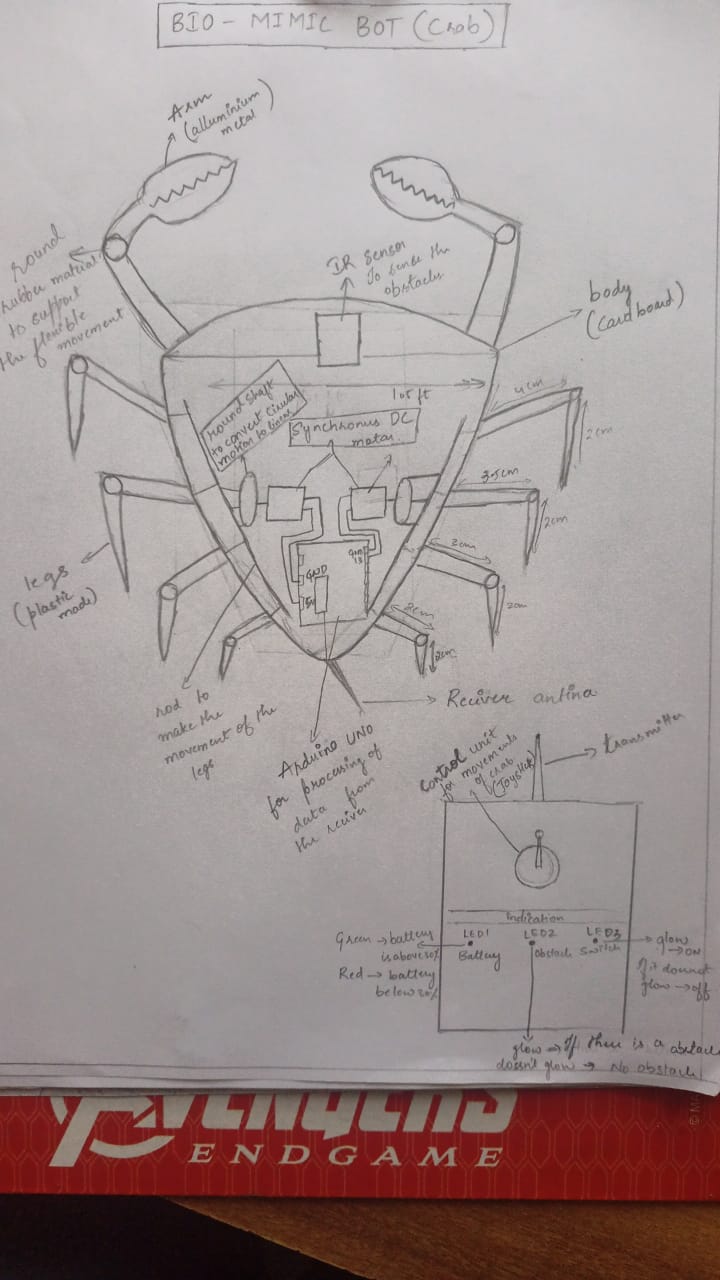 BIO - MIMIC BOT (Crab)
Arm
(alluminium
metal)
round
rubber material
to support
the flexible
movement
IR sensor
To sense the
obstacles
body
(cardboard)
1.5 ft
round shaft
to convert circular
motion to linear
Synchronus DC
motor
4cm
2cm
3.5cm
2cm
3cm
2cm
2cm
2cm
GND
5V
13
legs
(plastic
made)
rod to
make the
movement of the
legs
Arduino UNO
for procesing of
data from
the reciver
Reciver antina
transmitter
Control unit
for movements
of crab
(Joystick)
Indication
LED1
LED2
LED3
Battery
Obstacle
Switch
Green → battery
is above 20%
Red → battery
below 20%
glow
→ ON
If it doesnot
glow → off
glow → If there is a obstacle
doesn't glow → No obstacle
AVENGERS
ENDGAME